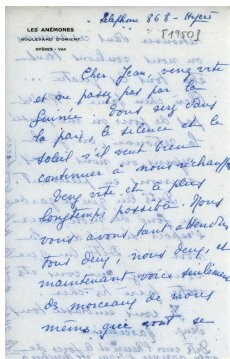 Téléphone 868 - Hyères
LES ANÉMONES
BOULEVARD D'ORIENT
HYÈRES - VAR
[1950]
Cher Jean, venez vite
et ne passez pas par la
Suisse. Vous serez dans
la paix, le silence et le
soleil s'il veut bien
continuer à nous réchauffer
Venez vite et le plus
longtemps possible. Nous
vous avons tant attendu
tous deux, nous deux, et
maintenant voici seulement
des morceaux de nous
mêmes que vont se